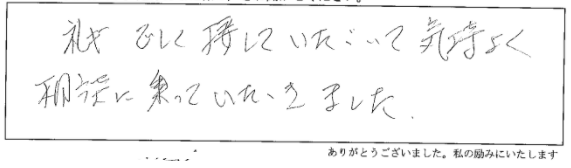 礼ぎ正しく接していただいて気持よく
相談に乗っていただきました.
ありがとうございました。私の励みにいたします